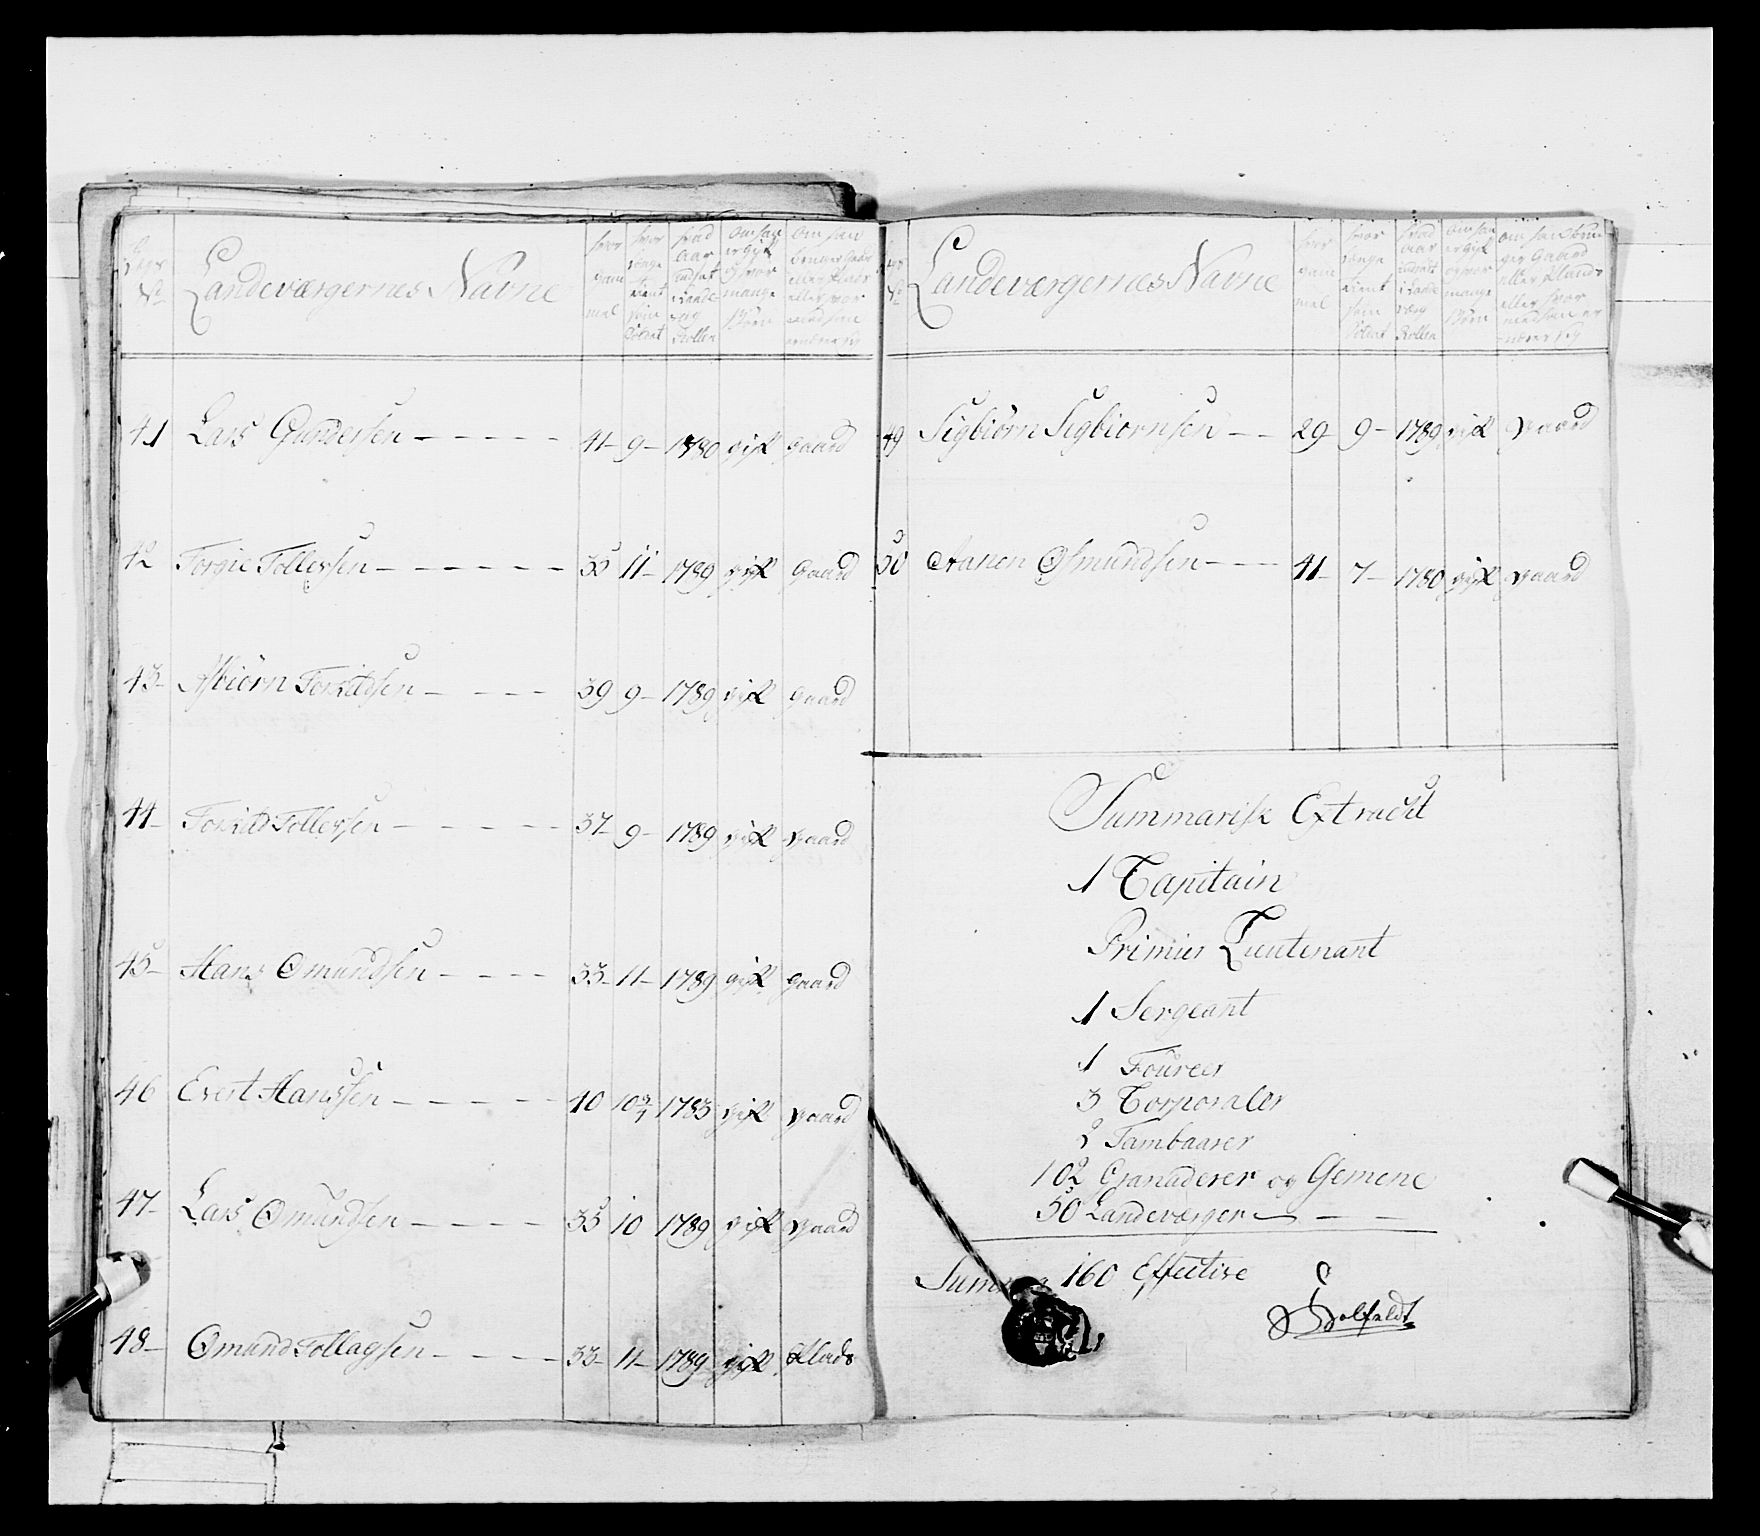 Landeværgernes Navne
hvor gam mel
hvor længe tient som Soldat
hvad aar indsat i Lande værg Rollen
om han er gift og hvor mange Børn
om han
41 Lars Gundersen 41 9 1780 gift gaard
42 Torgie Tollevsen 35 11 1789 gift Gaard
43 Asbiörn Torkildsen 39 9 1789 gift gaard
44 Torkild Tollevsen 37 9 1789 gift gaard
45 Hans Omundsen 33 11 1789 gift gaard
46 Evert Hanssen 40 10 1783 gift gaard
47 Lars Omundsen 35 10 1789 gift gaard
48 Omund Tollagsen 33 11 1789 gift Plads
Landeværgernes Navne
hvor gam mel
hvor længe tient som Soldat
hvad aar indsat i Lande værg Rollen
om han er gift og hvor mange Börn
om han
49 Sigbiörn Sigbiörnsen 29 9 1789 gift gaard
50 Aanen Osmundsen 41 7 1780 gift gaard
Summarisk Extract
1 Capitain
Primier Lieutenant
1 Sergeant
1 Foureer
3 Corporaler
2 Tambaarer
102 Granaderer og Gemene
50 Landeværger
Summa 160 Effective